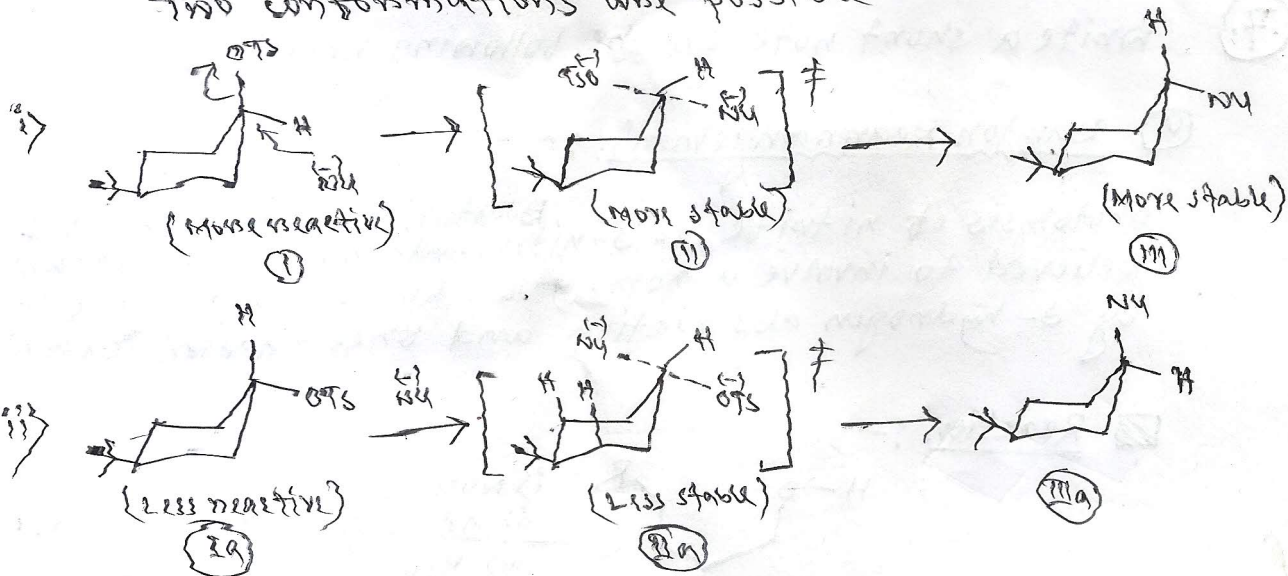 Two conformations are possible
i>
OTS
H
(-)
Nu
(More reactive)
I
(-)
TSO
H
(-)
Nu
≠
(More stable)
II
H
Nu
(More stable)
III
ii>
H
OTS
(Less reactive)
Ia
(-)
Nu
(-)
Nu
H
H
H
(-)
OTS
≠
(Less stable)
IIa
Nu
H
IIIa